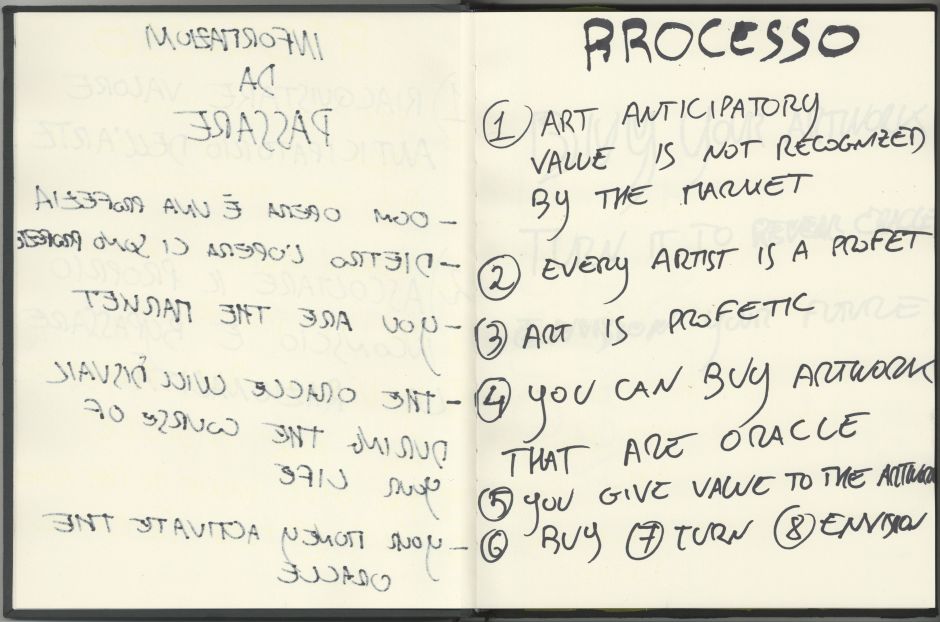 INFORMAZIONI
DA
PASSARE
- OGNI OPERA È UNA PROFEZIA
- DIETRO L'OPERA CI SONO
- YOU ARE THE MARKET
- THE ORACLE WILL DISVAIL
DURING THE COURSE OF
YOUR LIFE
- YOUR MONEY ACTIVATE THE
ORACLE
PROCESSO
1 ART ANTICIPATORY
VALUE IS NOT RECOGNIZED
BY THE MARKET
2 EVERY ARTIST IS A PROFET
3 ART IS PROFETIC
4 YOU CAN BUY ARTWORK
THAT ARE ORACLE
5 YOU GIVE VALUE TO THE ARTWORK
6 BUY 7 TURN 8 ENVISION